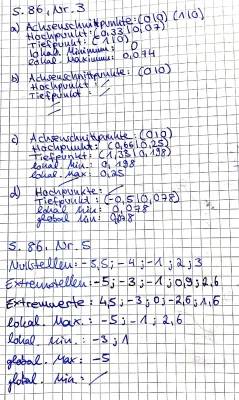 S. 86, Nr. 3
a) Achsenschnittpunkte: (0|0) (1|0)
Hochpunkt: (0,33|0,07)
Tiefpunkt: (1|0)
lokal. Minimum: 0
lokal. Maximum: 0,074
b) Achsenschnittpunkte: (0|0)
Hochpunkt: /
Tiefpunkt: /
c) Achsenschnittpunkte: (0|0)
Hochpunkt: (0,66|0,25)
Tiefpunkt: (1,33|0,198)
lokal. Min.: 0,198
lokal. Max: 0,25
d) Hochpunkte: /
Tiefpunkt: (-0,5|0,078)
lokal min: 0,078
global min: 0,078
S. 86, Nr. 5
Nullstellen: -5,5; -4; -1; 2; 3
Extremstellen: -5; -3; -1; 0,9; 2,6
Extremwerte: 4,5; -3; 0; -2,6; 1,6
lokal. Max.: -5; -1; 2,6
lokal. min.: -3; 1
global. Max: -5
global. Min.: /